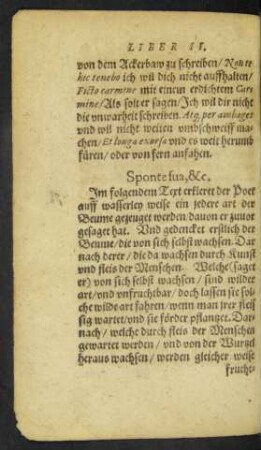 LIBER II.
von dem Ackerbaw zu schreiben / Non te
hic tenebo ich wil dich nicht auffhalten /
Ficto carmine mit einem erdichtem Car
mine / Als solt er sagen / Ich wil dir nicht
die vnwarheit schreiben. Atq; per ambages
vnd wil nicht weiten vmbschweiff ma-
chen / Et longa exorsa vnd es weit herumb
füren / oder von fern anfahen.
Sponte sua, &c.
Im folgendem Text erkleret der Poet
auff wasserley weise ein jedere art der
Beume gezeuget werden dauon er zuuor
gesaget hat. Vnd gedencket erstlich der
Beume / die von sich selbst wachsen. Dar
nach derer / die da wachsen durch Kunst
vnd fleis der Menschen Welche (saget
er) von sich selbst wachsen / sind wilder
art / vnd vnfruchtbar / doch lassen sie sol-
che wilde art fahren / wenn man jrer fleis
sig wartet / vnd sie förder pflantzet. Dar-
nach / welche durch fleis der Menschen
gewartet werden / vnd von der Wurtzel
heraus wachsen / werden gleicher weise
frucht-